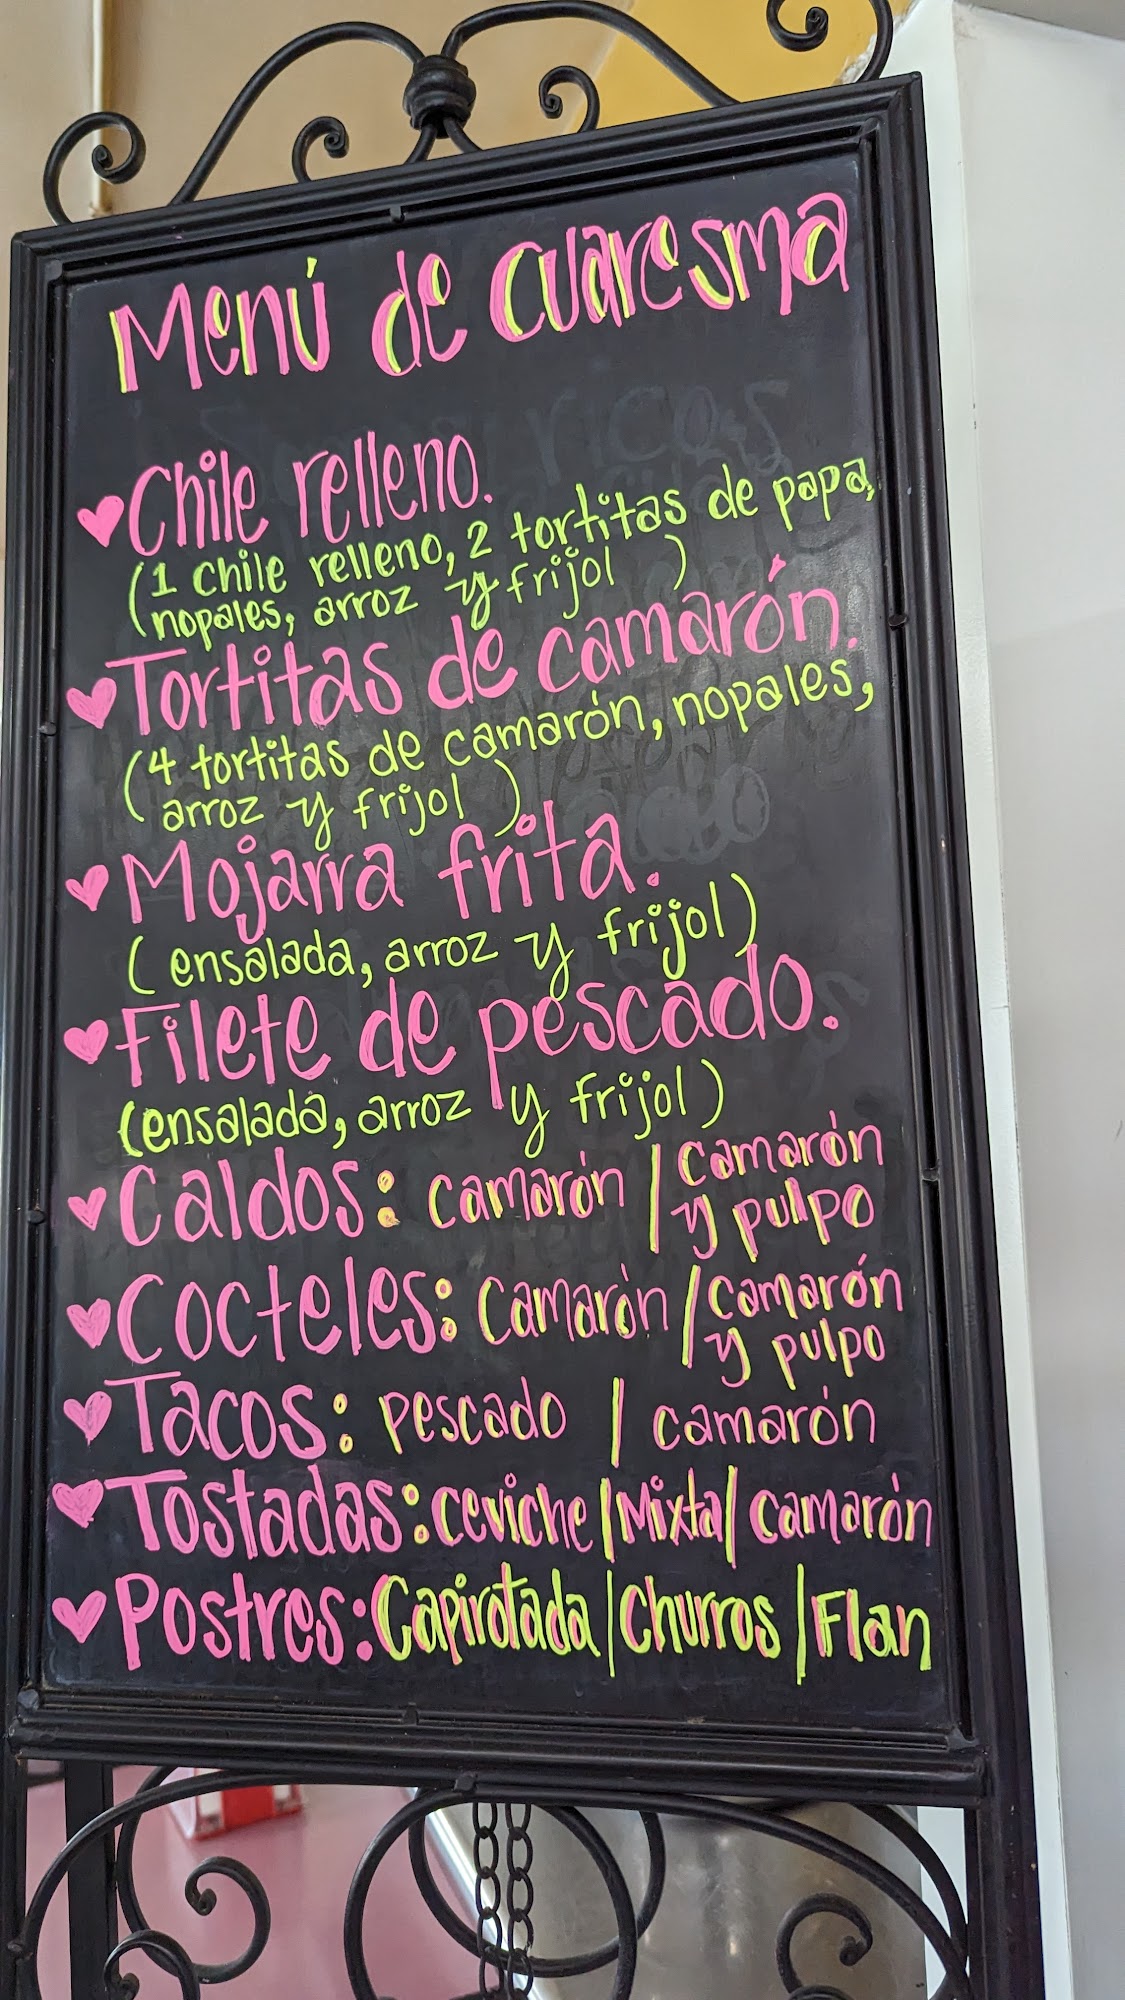 Menú de cuaresma
Chile relleno.
(1 chile relleno, 2 tortitas de papa,
nopales, arroz y frijol )
Tortitas de camarón.
(4 tortitas de camarón, nopales,
arroz y frijol )
Mojarra frita.
( ensalada, arroz y frijol)
Filete de pescado.
(ensalada, arroz y frijol)
Caldos: camarón / camarón
y pulpo
Cocteles: camarón / camarón
y pulpo
Tacos: pescado / camarón
Tostadas: ceviche / Mixta / camarón
Postres: Capirotada / Churros / Flan